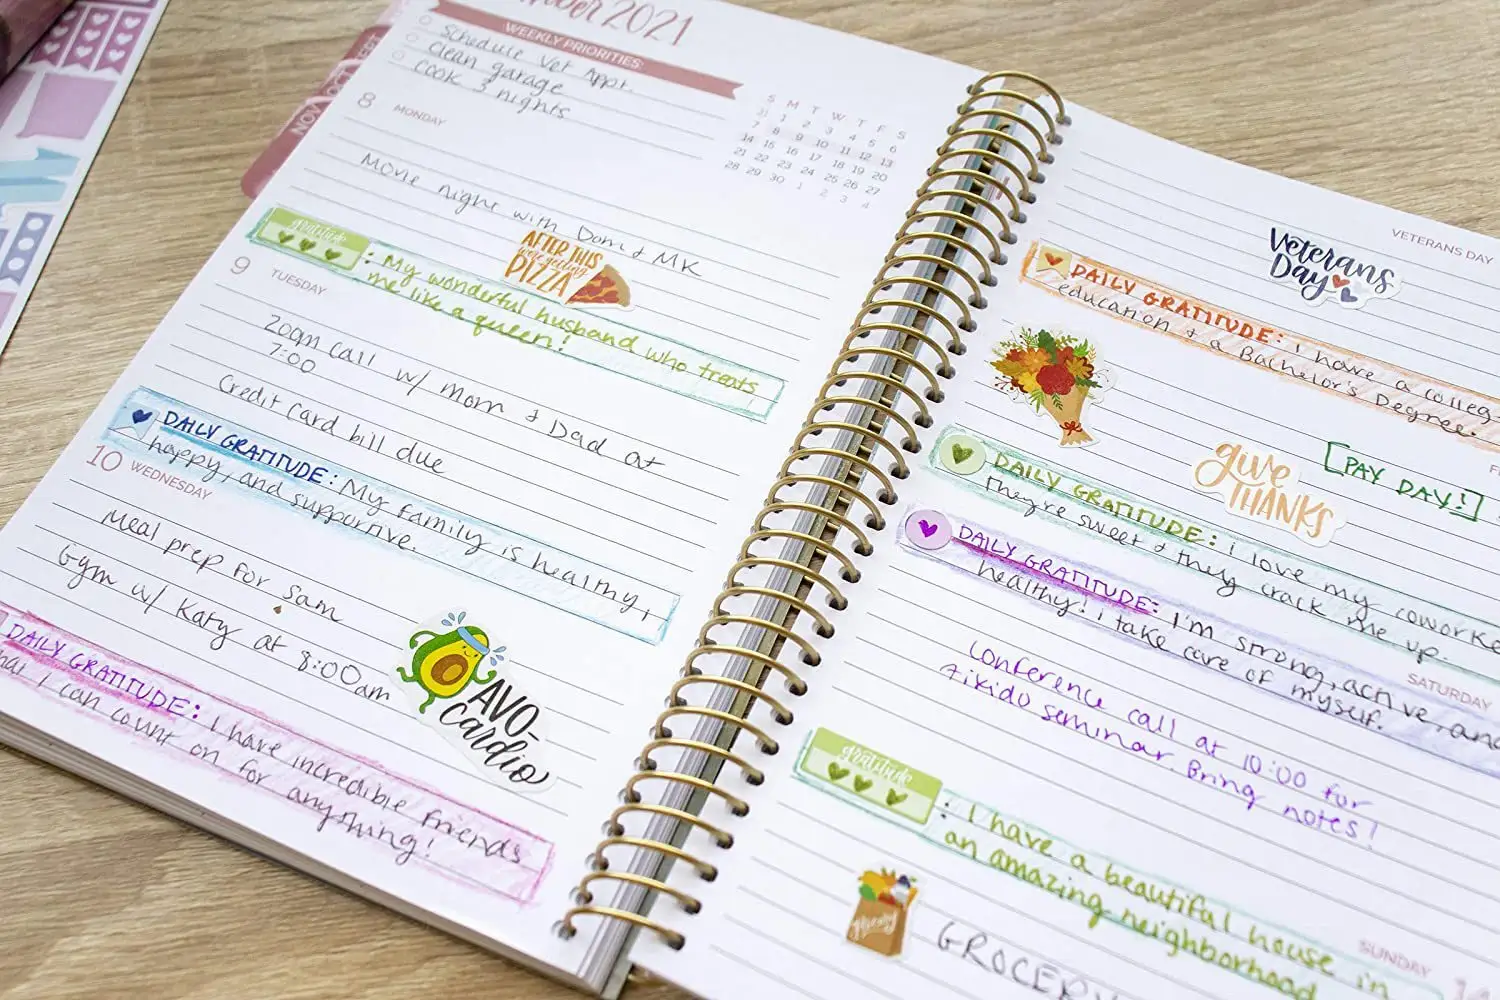 2021
WEEKLY PRIORITIES:
Schedule Vet Appt.
Clean garage
Cook 3 nights
S M T W T F S
31 1 2 3 4 5 6
7 8 9 10 11 12 13
14 15 16 17 18 19 20
21 22 23 24 25 26 27
28 29 30 1 2 3 4
NOV
OCT
SEPT
8 MONDAY
Movie night with Dom & MK
AFTER THIS
we're getting
PIZZA
gratitude : My wonderful husband who treats
me like a queen!
9 TUESDAY
Zoom call w/ Mom & Dad at
7:00
Credit Card bill due
DAILY GRATITUDE: My family is healthy,
happy, and supportive.
10 WEDNESDAY
Meal prep for Sam
Gym w/ Katy at 8:00am
AVO-
cardio
DAILY GRATITUDE: I have incredible friends
that I can count on for
anything!
VETERANS DAY
Veterans
Day
DAILY GRATITUDE: i have a colleg
education & a Bachelor's Degree.
give
THANKS
[PAY DAY!]
DAILY GRATITUDE: i love my coworke
They're sweet & they crack me up.
DAILY GRATITUDE: I'm strong, active, and
healthy! i take care of myself.
SATURDAY
Conference call at 10:00 for
Aikido seminar. Bring notes!
gratitude : I have a beautiful house in
an amazing neighborhood
SUNDAY
GROCERY